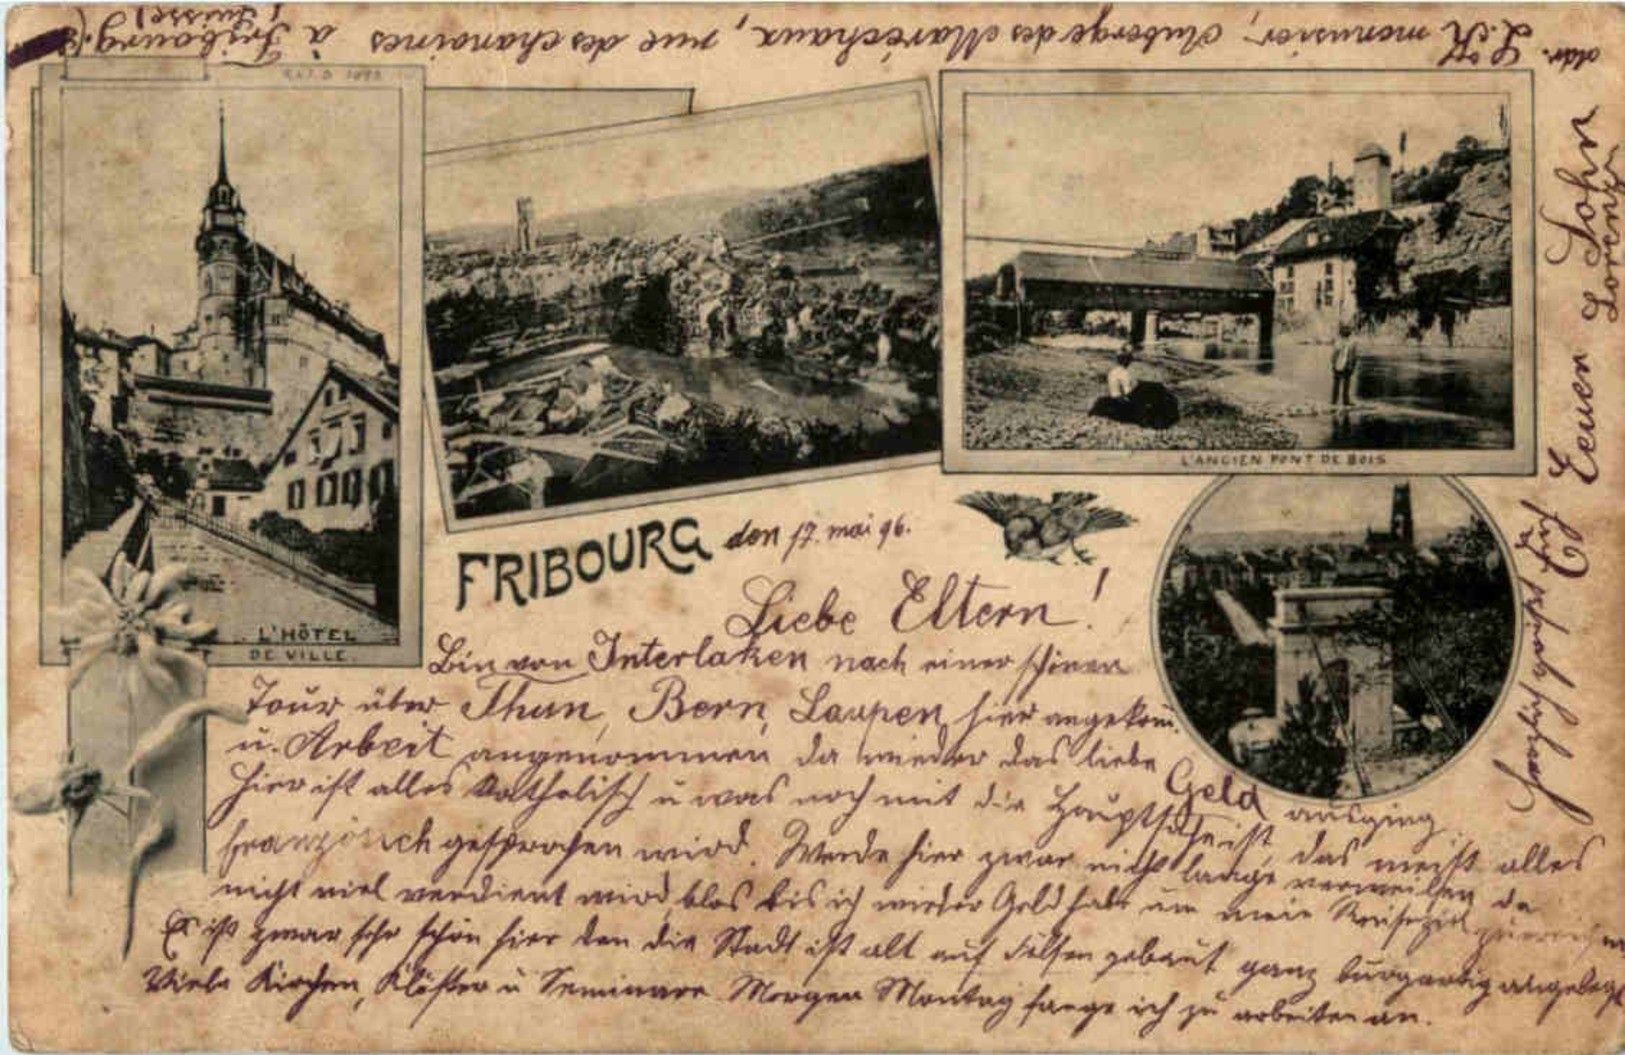 Adr. L. K. menusier, Auberge des Maréchaux, rue des chanoines à Fribourg.
(Suisse)
L'HÔTEL
DE VILLE.
L'ANCIEN PONT DE BOIS
FRIBOURG den 17. mai 96.
Liebe Eltern!
Bin von Interlaken nach einer schönen
Tour über Thun, Bern, Laupen, hier angekom.
u. Arbeit angenommen da wieder das liebe Geld ausging
Hier ist alles katholisch u was noch mit die Hauptsache ist, das meist alles
französisch gesprochen wird. Werde hier zwar nicht lange verweilen da
nicht viel verdient wird, blos bis ich wieder Geld habe um mein Reiseziel zu erreichen
Es ist zwar sehr schön hier den die Stadt ist alt auf Felsen gebaut ganz burgartig angelegt
Viele Kirchen, Klöster u Seminare. Morgen Montag fange ich zu arbeiten an.
Herzlich grüßt Euch
Euer Sohn
Lorenz